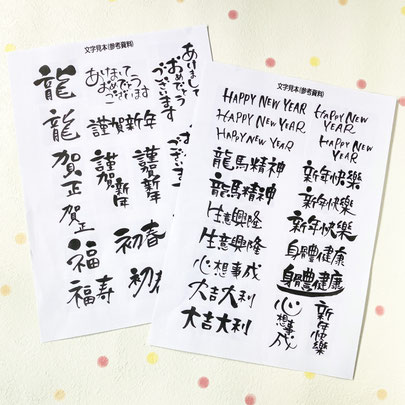 文字見本(参考資料)
龍
龍
賀正
賀正
福
福寿
あけまして
おめでとう
ございます
謹賀新年
謹賀
新年
謹賀
新年
初春
初春
あけまして
おめでとう
ございます
文字見本(参考資料)
HAPPY NEW YEAR
HAPPY NEW YEAR
HAPPY NEW YEAR
龍馬精神
龍馬精神
生意興隆
生意興隆
心想事成
大吉大利
大吉大利
HAPPY NEW
YEAR
HAPPY NEW
YEAR
新年快樂
新年快樂
新年快樂
身體健康
身體健康
心想事成
新年快樂